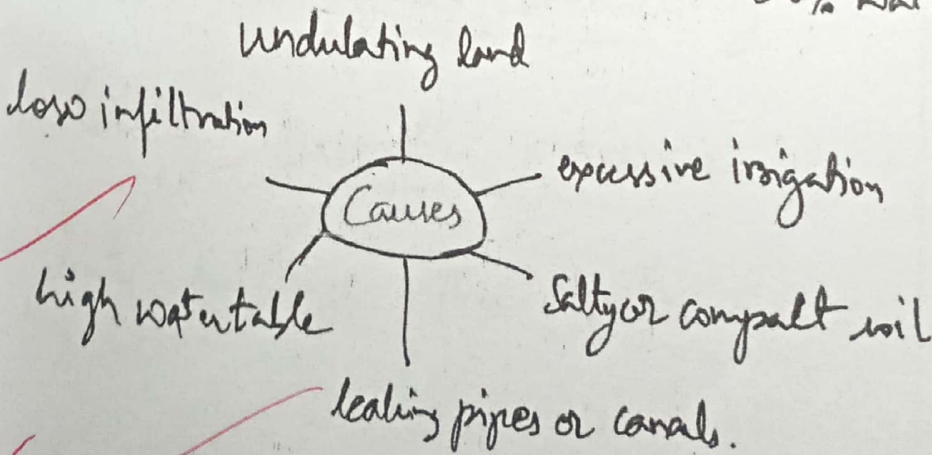 undulating land
low infiltration
excessive irrigation
Causes
high watertable
Salty or compact soil
leaking pipes or canals.